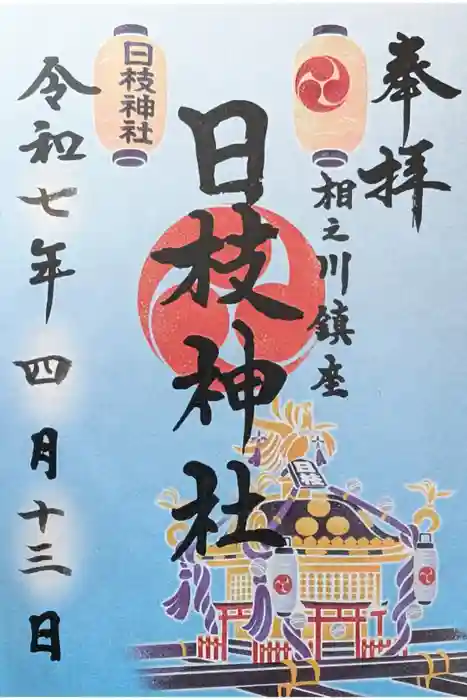 奉拝
相之川鎮座
日枝神社
令和七年四月十三日
日枝神社
日枝